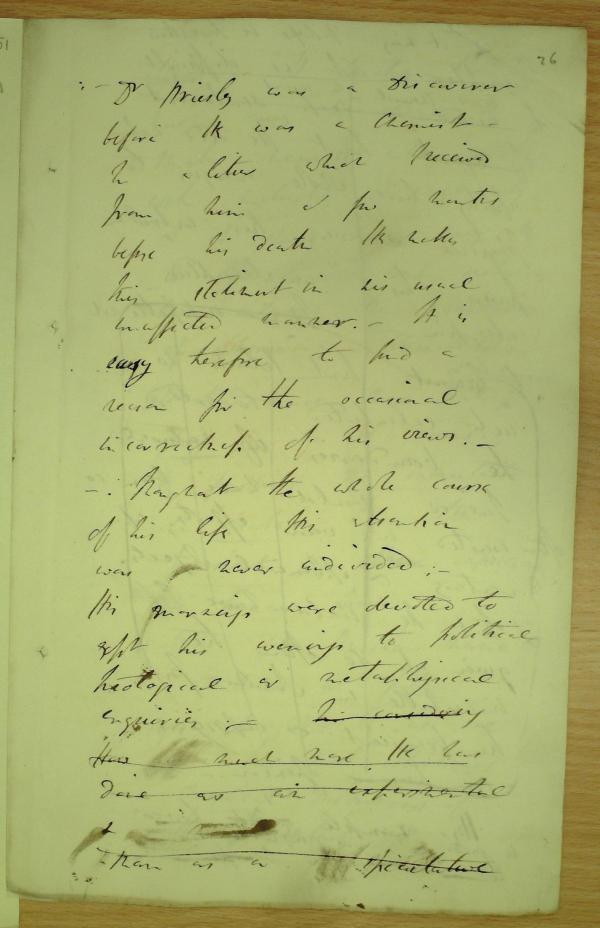 26
:- Dr Priestly was a Discoverer
before He was a Chemist -
In a letter which I received
from him a few months
before his death He makes
this statement in his usual
unaffected manner. - It is
easy therefore to find a
reason for the occasional
incorrectness of his views. -
- : Throughout the whole course
of his life His attention
was never undivided ; -
His mornings were devoted to
his evenings to political
theological or metaphysical
enquiries ; - his considering
How much more He has
done as an experimental
than as a speculative